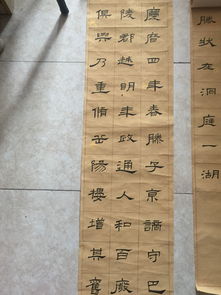 慶曆四年春滕子京謫守巴
陵郡越明年政通人和百廢
俱興乃重脩岳陽樓增其舊
勝狀在洞庭一湖